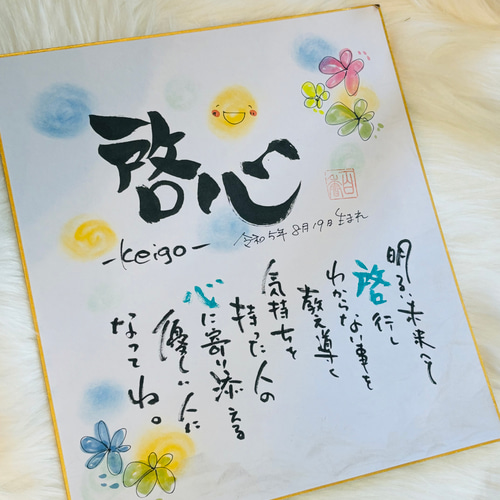 啓心
-Keigo-
令和5年8月19日生まれ
明るい未来へ
啓行し
わからない事を
教え導く
気持ちを
持った人の
心に寄り添える
優しい人に
なってね。